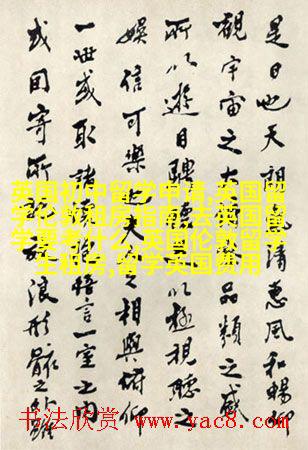 是日也天朗氣清惠風和暢仰
觀宇宙之大俯察品類之盛
所以遊目騁懷足以極視聽之
娛信可樂也夫人之相與俯仰
一世或取諸懷抱悟言一室之內
或因寄所託放浪形骸之外雖
英国初中留学申请,英国留
学伦敦租房指南,去英国留
学要考什么,英国伦敦留学
生租房,留学英国费用
书法欣赏 www.yac8.com